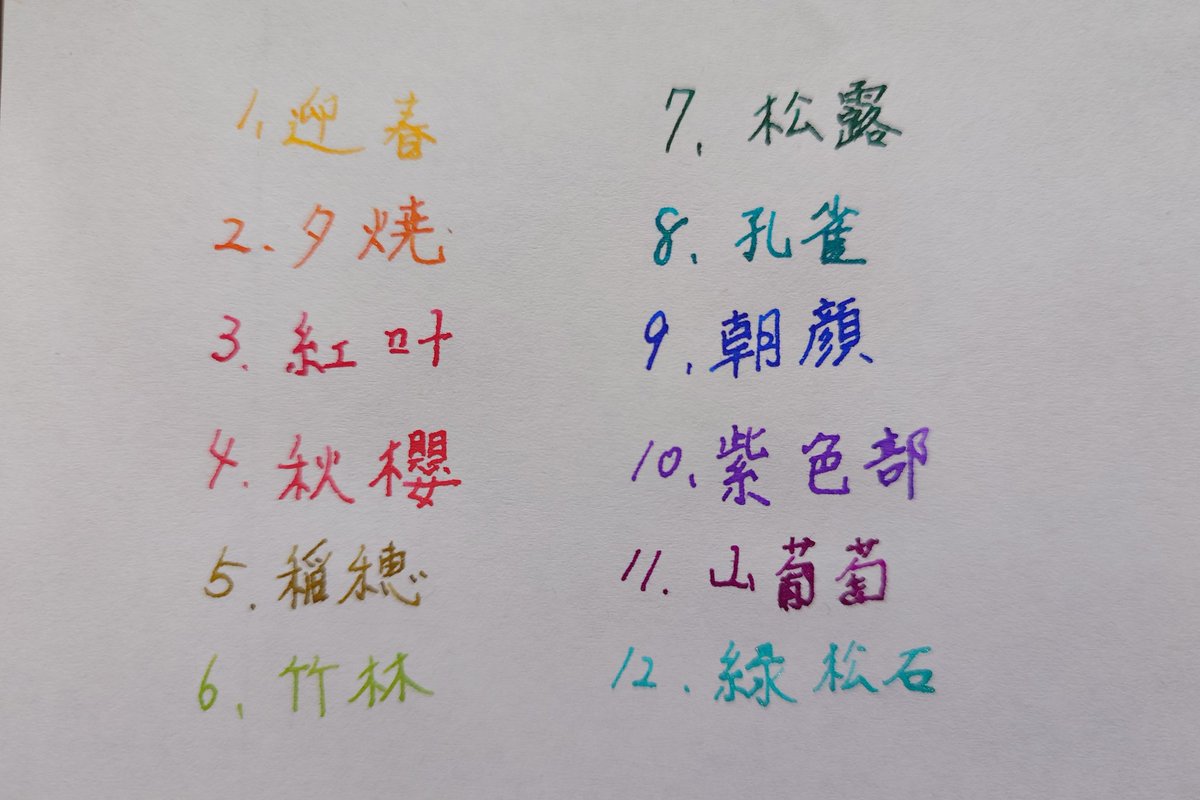 1. 迎春
2. 夕焼
3. 紅叶
4. 秋櫻
5. 稲穂
6. 竹林
7. 松露
8. 孔雀
9. 朝顔
10. 紫色部
11. 山葡萄
12. 緑松石